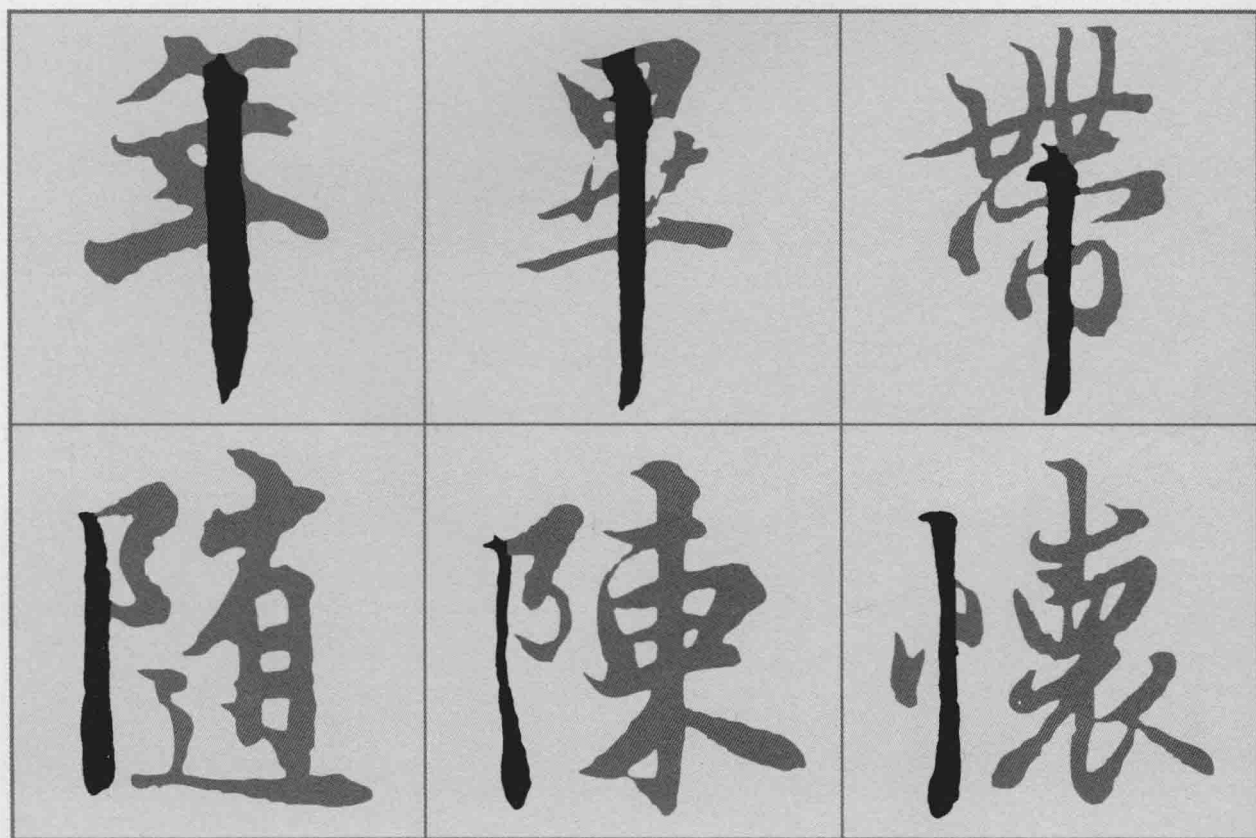 年畢帶
随陳懷